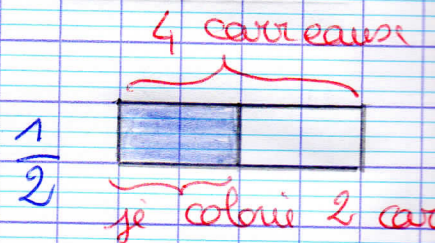 4 carreaux
1
2
je colorie 2 car